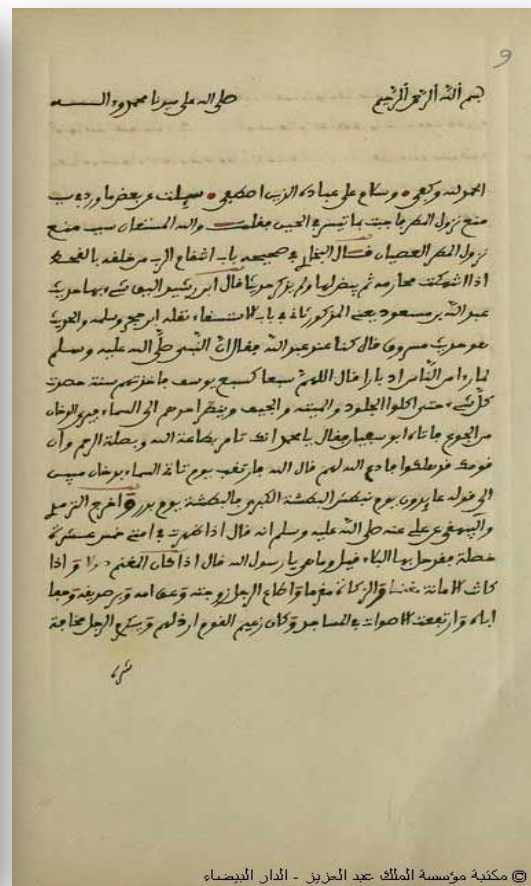 9
بسم الله الرحمن الرحيم صلى الله على سيدنا محمد وءاله
الحمد لله وكفى وسلام على عباده الذين اصطفى سيلت عن بعض ما ورد في سبب
منع نزول المطر فاجبت بما تيسر في الحين فقلت والله المستعان سبب منع
نزول المطر العصيان قال البخاري في صحيحه باب انتقام الرب من خلقه بالقحط
اذا انتهكت محارمه ثم بيض لها ولم يذكر حديثا قال ابن رشيد اليق شيء بها حديث
عبد الله بن مسعود يعني المذكور ثاني باب الاستسقاء نقله ابن حجر وسلمه والحديث
هو حديث مسروق قال كنا عند عبد الله فقال ان النبي صلى الله عليه وسلم
لما رءا من الناس ادبارا قال اللهم سبعا كسبع يوسف فاخذتهم سنة حصت
كل شيء حتى اكلوا الجلود والميتة والجيف وينظر احدهم الى السماء فيرى الدخان
من الجوع فاتاه ابو سفيان فقال يا محمد انك تامر بطاعة الله وبصلة الرحم وان
قومك قد هلكوا فادع الله لهم قال الله فارتقب يوم تاتي السماء بدخان مبين
الى قوله عايدون يوم نبطش البطشة الكبرى فالبطشة يوم بدر واخرج الترمذي
والبيهقي عن علي عنه صلى الله عليه وسلم انه قال اذا ظهرت في امتي خمس عشرة
خصلة فقد حل بها البلاء قيل وما هي يا رسول الله قال اذا كان المغنم دولا واذا
كانت الامانة مغنما والزكاة مغرما واطاع الرجل زوجته وعق امه وبر صديقه وجفا
اباه وارتفعت الاصوات في المساجد وكان زعيم القوم ارذلهم ويكرم الرجل مخافة
© مكتبة مؤسسة الملك عبد العزيز - الدار البيضاء